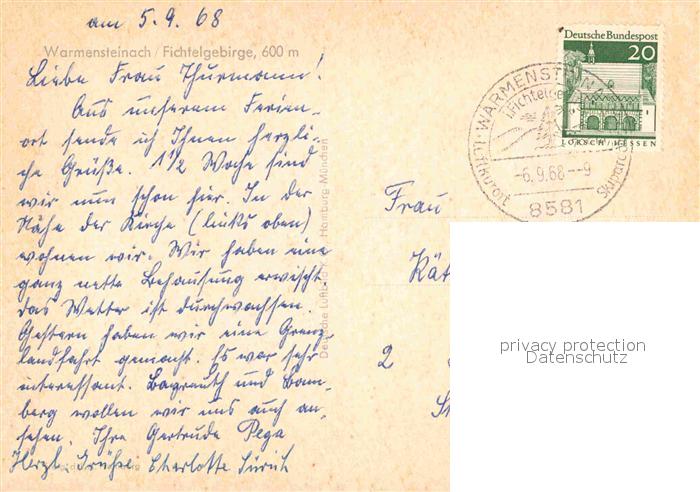 am 5.9.68
Warmensteinach / Fichtelgebirge, 600 m
Liebe Frau Thurmann!
Aus unserem Ferien-
ort sende ich Ihnen herzli-
che Grüße. 1 1/2 Woche sind
wir nun schon hier. In der
Nähe der Kirche (links oben)
wohnen wir. Wir haben eine
ganz nette Behausung erwischt
das Wetter ist durchwachsen.
Gestern haben wir eine Grenz
landfahrt gemacht. Es war sehr
interessant. Bayreuth und Bam-
berg wollen wir uns auch an-
sehen. Ihre Gertrude Pega
Herzl. Grüße Charlotte
Deutsche Hamburg-München
Deutsche Bundespost
20
LORSCH / HESSEN
WARMENSTEINACH
i. Fichtelge
-6.9.68--9
8581
Frau
Kät
2
privacy protection
Datenschutz